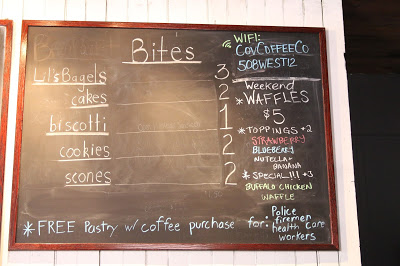 Bites
Lil's Bagels 3
cakes 2
biscotti 1
cookies 2
scones 2
WIFI:
COVCOFFEECO
508WEST12
Weekend
* WAFFLES
$5
* TOPPINGS +2
STRAWBERRY
BLUEBERRY
NUTELLA +
BANANA
* SPECIAL!!! +3
BUFFALO CHICKEN
WAFFLE
* FREE Pastry w/ coffee purchase for: Police
firemen
health care
workers